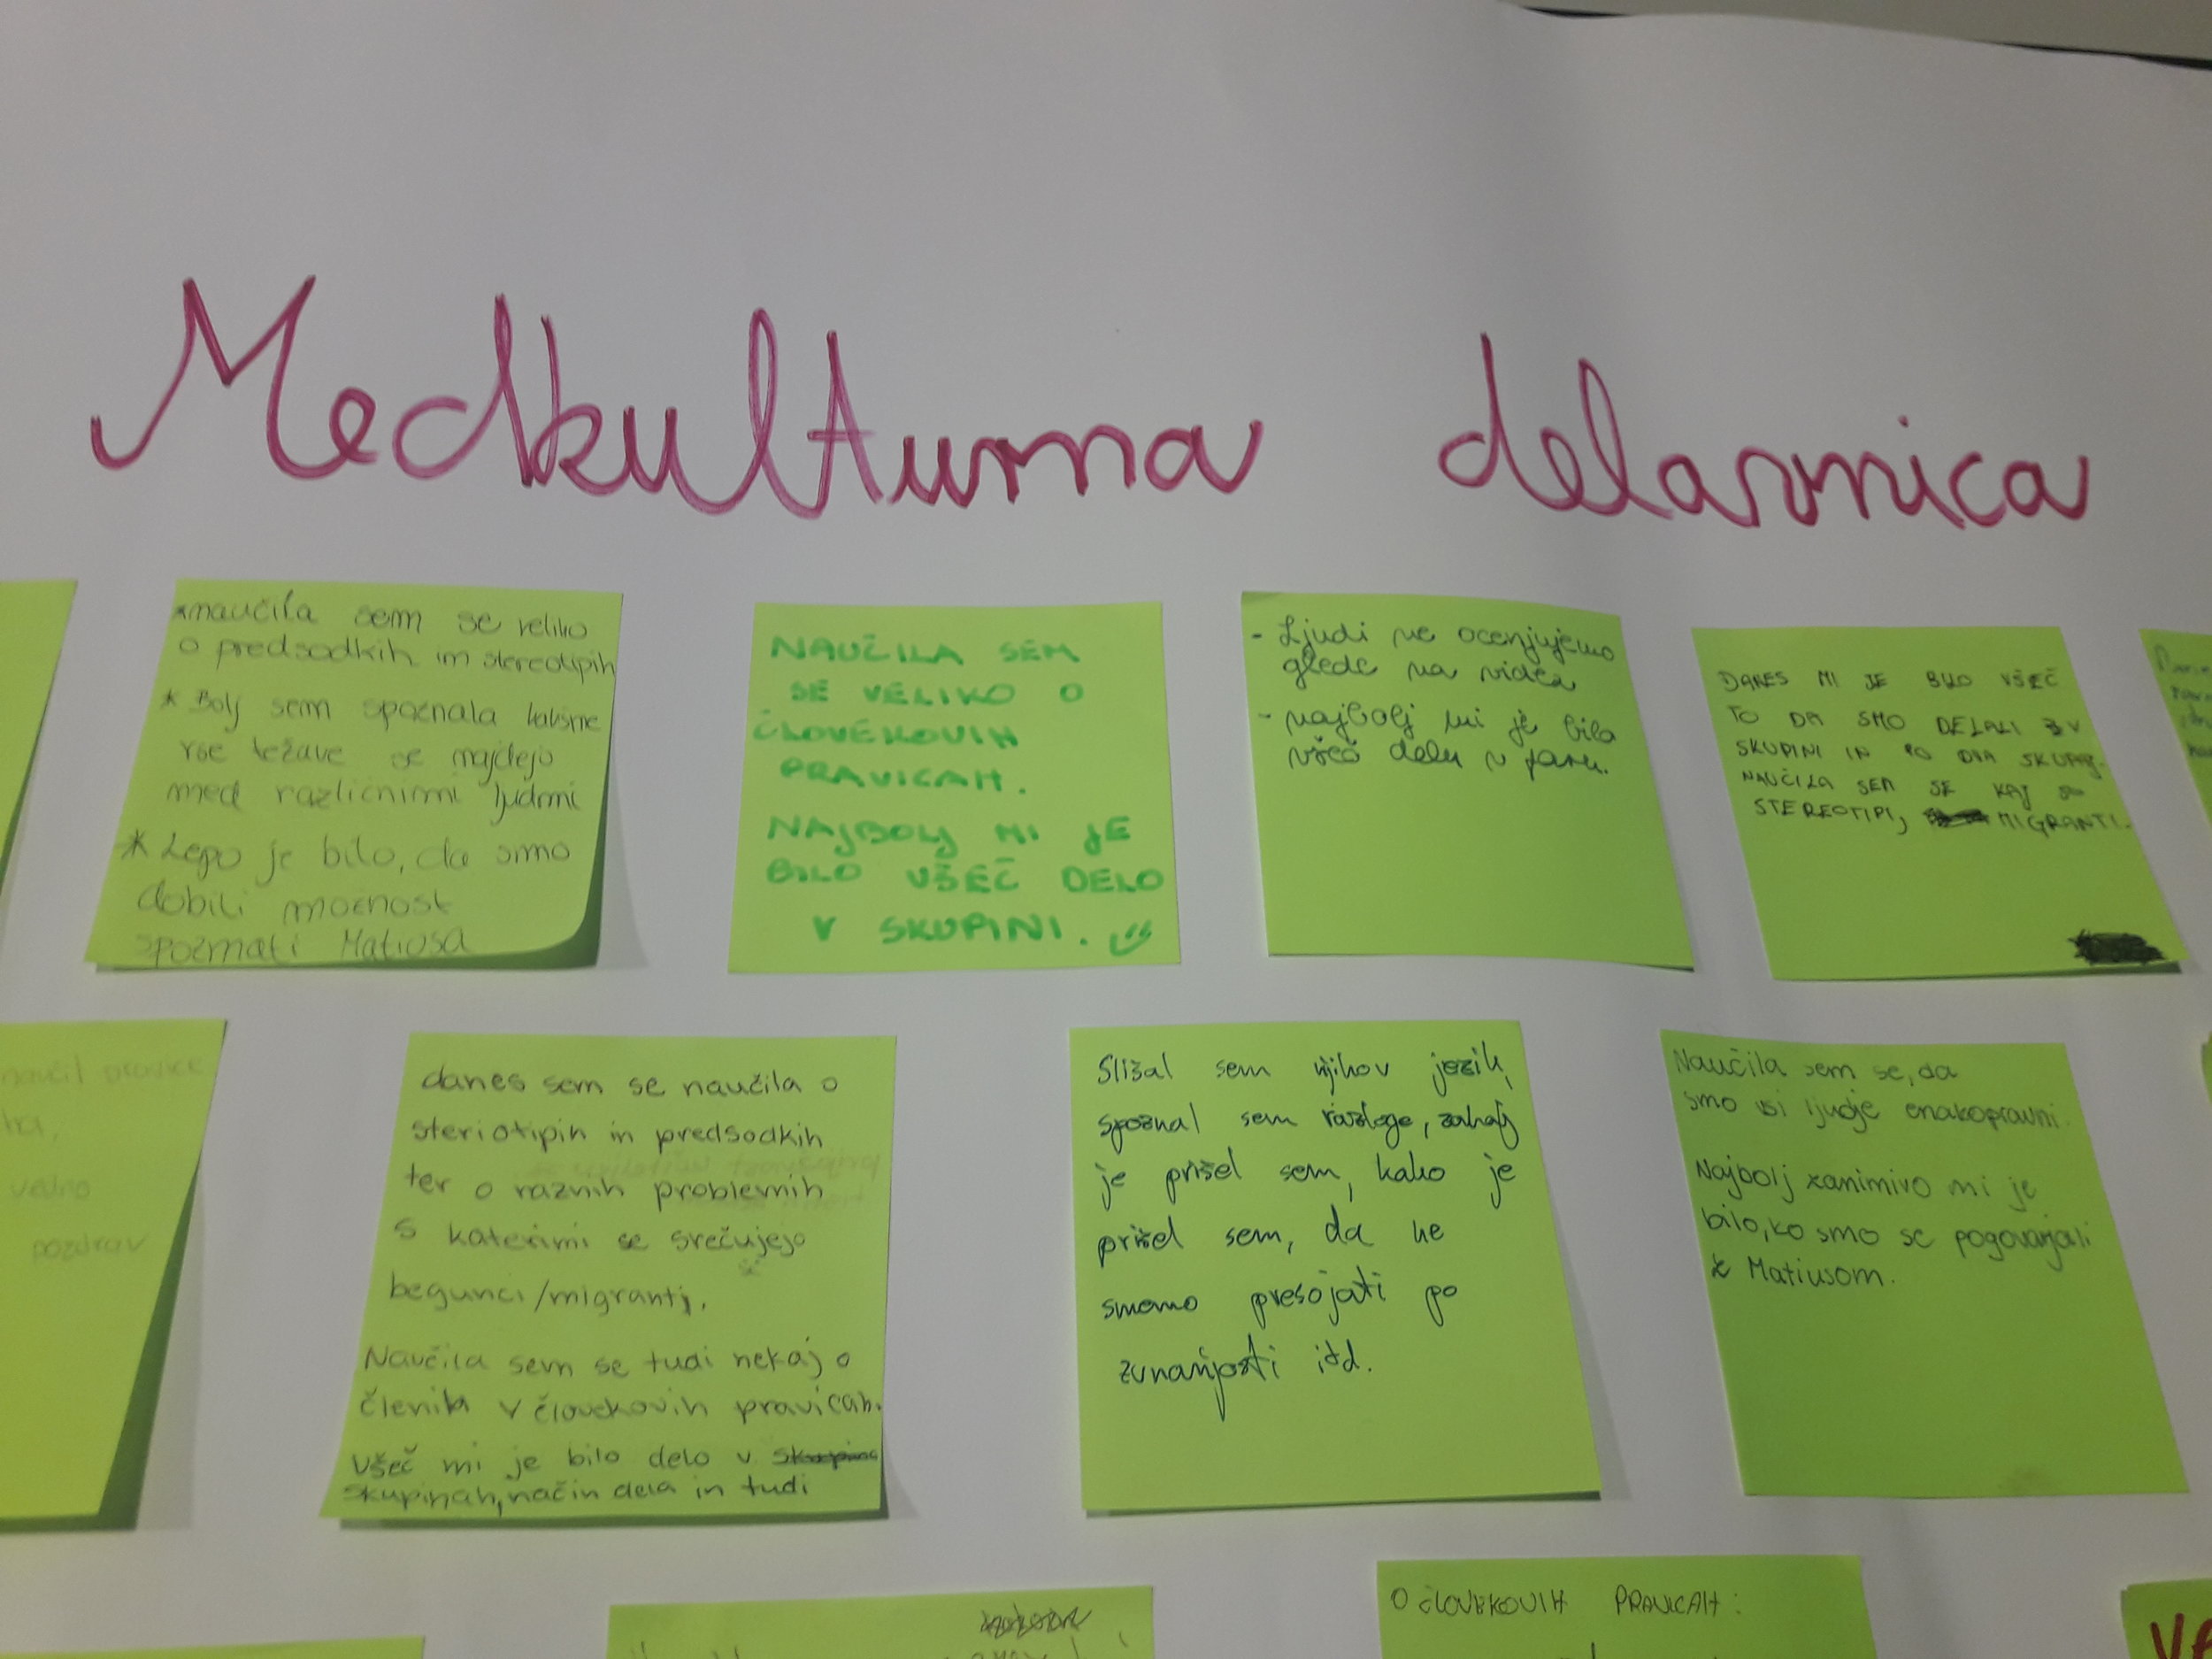 Medkulturna delavnica
*naučila sem se veliko
o predsodkih in stereotipih
* Bolj sem spoznala kakšne
vse težave se najdejo
med različnimi ljudmi
* Lepo je bilo, da smo
dobili možnost
spoznati Matiusa
NAUČILA SEM
SE VELIKO O
ČLOVEKOVIH
PRAVICAH.
NAJBOLJ MI JE
BILO VŠEČ DELO
V SKUPINI.
- Ljudi ne ocenjujemo
glede na videz
- najbolj mi je bilo
všeč delu v paru.
DANES MI JE BILO VŠEČ
TO DA SMO DELALI V
SKUPINI IN PO DVA SKUPAJ.
NAUČILA SEM SE KAJ SO
STEREOTIPI, MIGRANTI.
naučil pravice
pozdrav
danes sem se naučila o
steriotipih in predsodkih
ter o raznih problemih
s katerimi se srečujejo
begunci/migranti.
Naučila sem se tudi nekaj o
členih v človekovih pravicah.
Všeč mi je bilo delo v
skupinah, način dela in tudi
Slišal sem njihov jezik,
spoznal sem razloge, zakaj
je prišel sem, kako je
prišel sem, da ne
smemo presojati po
zunanjosti itd.
Naučila sem se, da
smo vsi ljudje enakopravni.
Najbolj zanimivo mi je
bilo, ko smo se pogovarjali
z Matiusom.
O ČLOVEKOVIH PRAVICAH: